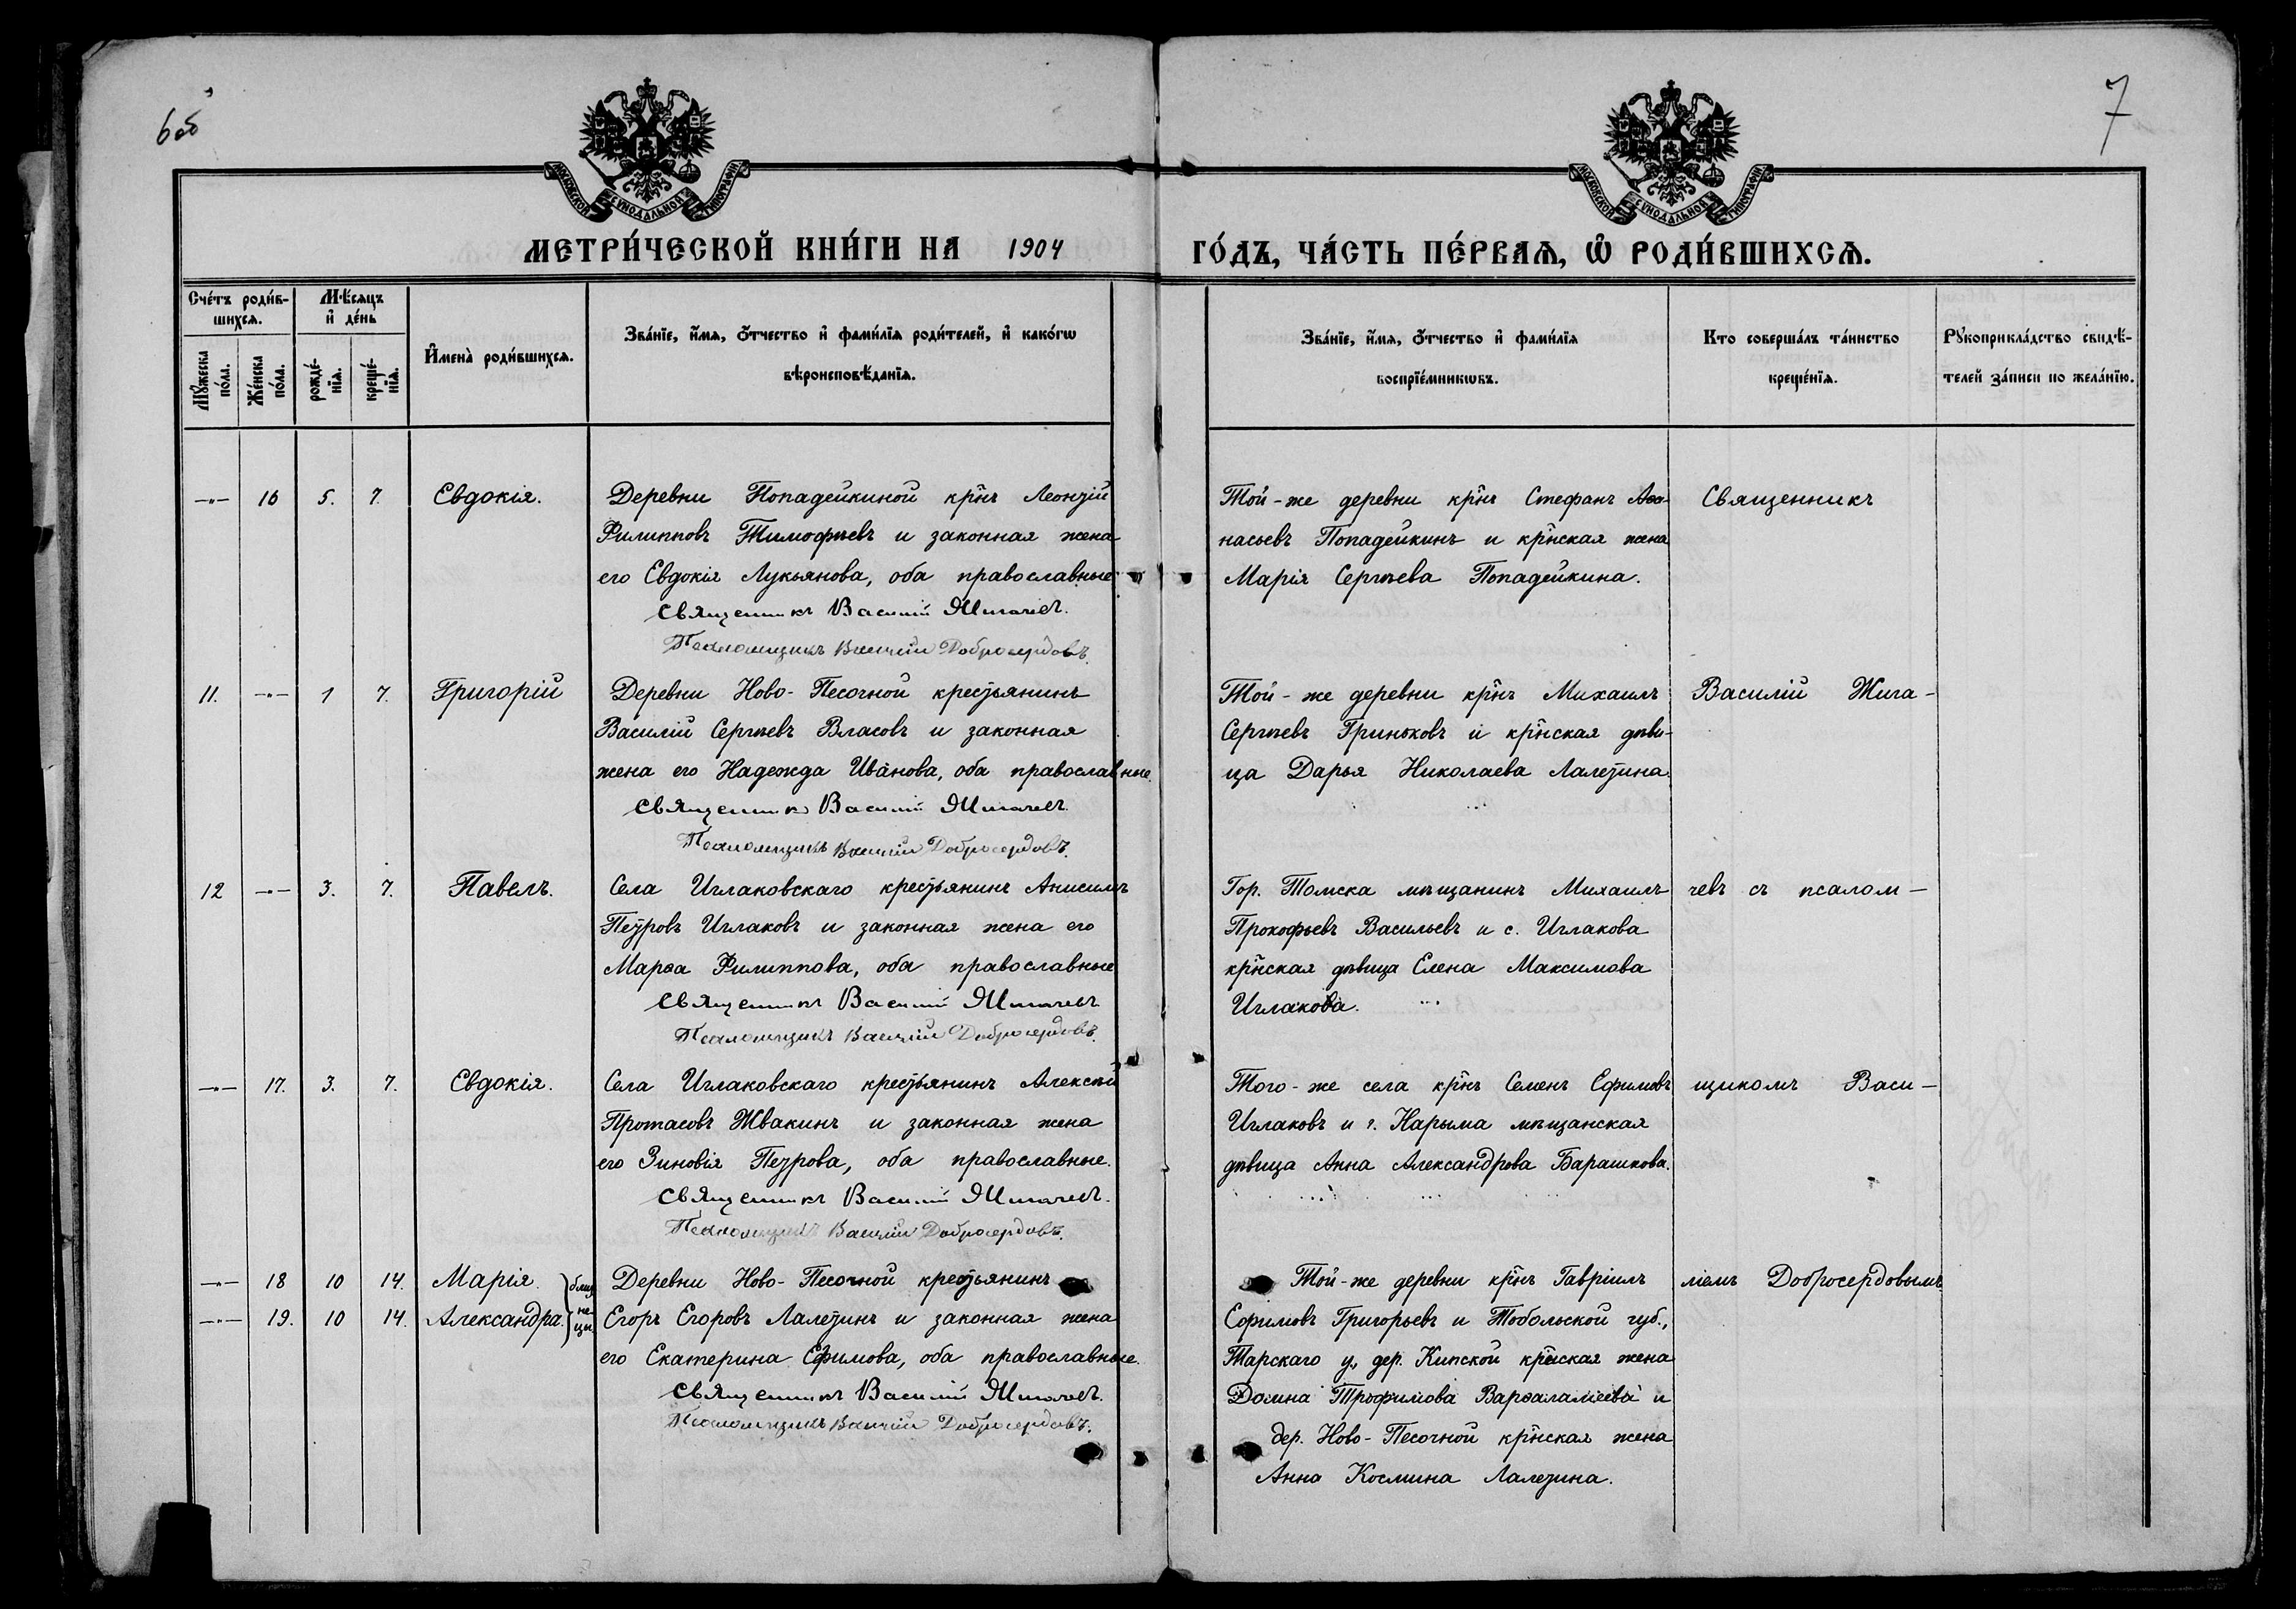 6об
7
МОСКОВСКОЙ СѴНОДАЛЬНОЙ ТИПОГРАФІИ
МОСКОВСКОЙ СѴНОДАЛЬНОЙ ТИПОГРАФІИ
МЕТРИ́ЧЕСКОЙ КНИ́ГИ НА 1904 ГО́ДЪ, ЧА́СТЬ ПЕ́РВАѦ, Ѽ РОДИ́ВШИХСѦ.
Сче́тъ роди́в-
шихсѧ.
Мꙋ́жеска по́ла.
Же́нска по́ла.
Мѣ́сѧцъ
и҆ де́нь
рожде́-
нїѧ.
креще́-
нїѧ.
И҆мена̀ роди́вшихсѧ.
Зва́нїе, и҆́мѧ, ѻ҆́тчество и҆ фами́лїѧ роди́телей, и҆ како́гѡ
вѣроисповѣ́данїѧ.
Зва́нїе, и҆́мѧ, ѻ҆́тчество и҆ фами́лїѧ
воспрїе́мникѡвъ.
Кто соверша́лъ та́инство
креще́нїѧ.
Рꙋкоприкла́дство свидѣ́-
телей за́писи по жела́нїю.
—„— 16 5. 7. Евдокія.
Деревни Попадейкиной кр̃нъ Леонтій
Филипповъ Тимофѣевъ и законная жена
его Евдокія Лукьянова, оба православные
Священникъ Василій Жигачевъ.
Псаломщикъ Василій Добросердовъ.
Той-же деревни кр̃нъ Стефанъ Аѳа-
насьевъ Попадейкинъ и кр̃нская жена
Марія Сергѣева Попадейкина.
Священникъ
11. —„— 1 7. Григорій
Деревни Ново-Песочной крестьянинъ
Василій Сергѣевъ Власовъ и законная
жена его Надежда Иванова, оба православные.
Священникъ Василій Жигачевъ.
Псаломщикъ Василій Добросердовъ.
Той-же деревни кр̃нъ Михаилъ
Сергѣевъ Гриньковъ и кр̃нская дѣви-
ца Дарья Николаева Лалетина.
Василій Жига-
12 —„— 3. 7. Павелъ.
Села Иглаковскаго крестьянинъ Анисимъ
Петровъ Иглаковъ и законная жена его
Марѳа Филиппова, оба православные
Священникъ Василій Жигачевъ
Псаломщикъ Василій Добросердовъ.
Гор. Томска мѣщанинъ Михаилъ
Прокофьевъ Васильевъ и с. Иглакова
кр̃нская дѣвица Елена Максимова
Иглакова.
чевъ съ псалом-
—„— 17. 3. 7. Евдокія.
Села Иглаковскаго крестьянинъ Алексѣй
Протасовъ Жвакинъ и законная жена
его Зиновія Петрова, оба православные.
Священникъ Василій Жигачевъ.
Псаломщикъ Василій Добросердовъ.
Того-же села кр̃нъ Семенъ Ефимовъ
Иглаковъ и г. Нарыма мѣщанская
дѣвица Анна Александрова Барашкова.
щикомъ Васи-
—„— 18 10 14. Марія.
—„— 19. 10 14. Александра.
близ
не-
цы.
Деревни Ново-Песочной крестьянинъ
Егоръ Егоровъ Лалетинъ и законная жена
его Екатерина Ефимова, оба православные.
Священникъ Василій Жигачевъ.
Псаломщикъ Василій Добросердовъ.
Той-же деревни кр̃нъ Гавріилъ
Ефимовъ Григорьевъ и Тобольской губ.,
Тарскаго у., дер. Кипской кр̃нская жена
Домна Трофимова Варѳаламеева и
дер. Ново-Песочной кр̃нская жена
Анна Космина Лалетина.
ліемъ Добросердовымъ